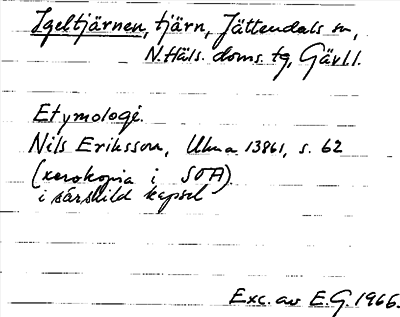 Igeltjärnen, tjärn, Jättendals sn,
N.Häls. doms. tg, Gävll.
Etymologi.
Nils Eriksson, Uluma 13861, s. 62
(xerokopia i SOA)
i särskild kapsel
Exc. av E.G. 1966.